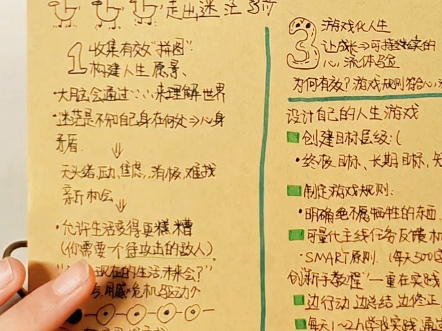 走出迷茫
1 收集有效“拼图”
构建人生愿景.
•大脑会通过...来理解世界
•迷茫是不知自身在何处⇒心身
矛盾
⇓
无头绪互动,焦虑,消极,难找
新机会
⇓
•允许生活变得更糟糕
(你需要一个待攻击的敌人)
现在的生活未来会?”
危机驱动
3 游戏化人生
让成长⇒可持续的
心流体验
为何有效?游戏规则符合心
设计自己的人生游戏
创建目标层级:(
•终极目标,长期目标,短
制作游戏规则:
•明确绝不牺牲的东西
可量化主线任务反馈机
•SMART原则 (每天500
创新手教程“一重在实践
边行动 边总结 边修正
每天1~2小时